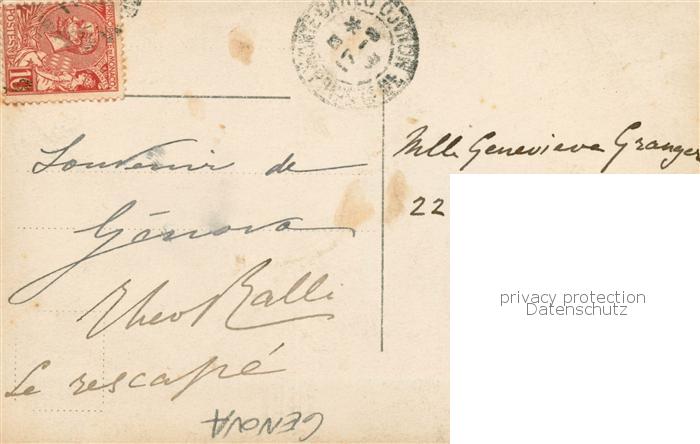 POSTES
10
MONTE CARLO
Mlle Genevieve Granger
22
Souvenir de
Génova
Theo Ralli
Le rescapé
GENOVA
privacy protection
Datenschutz